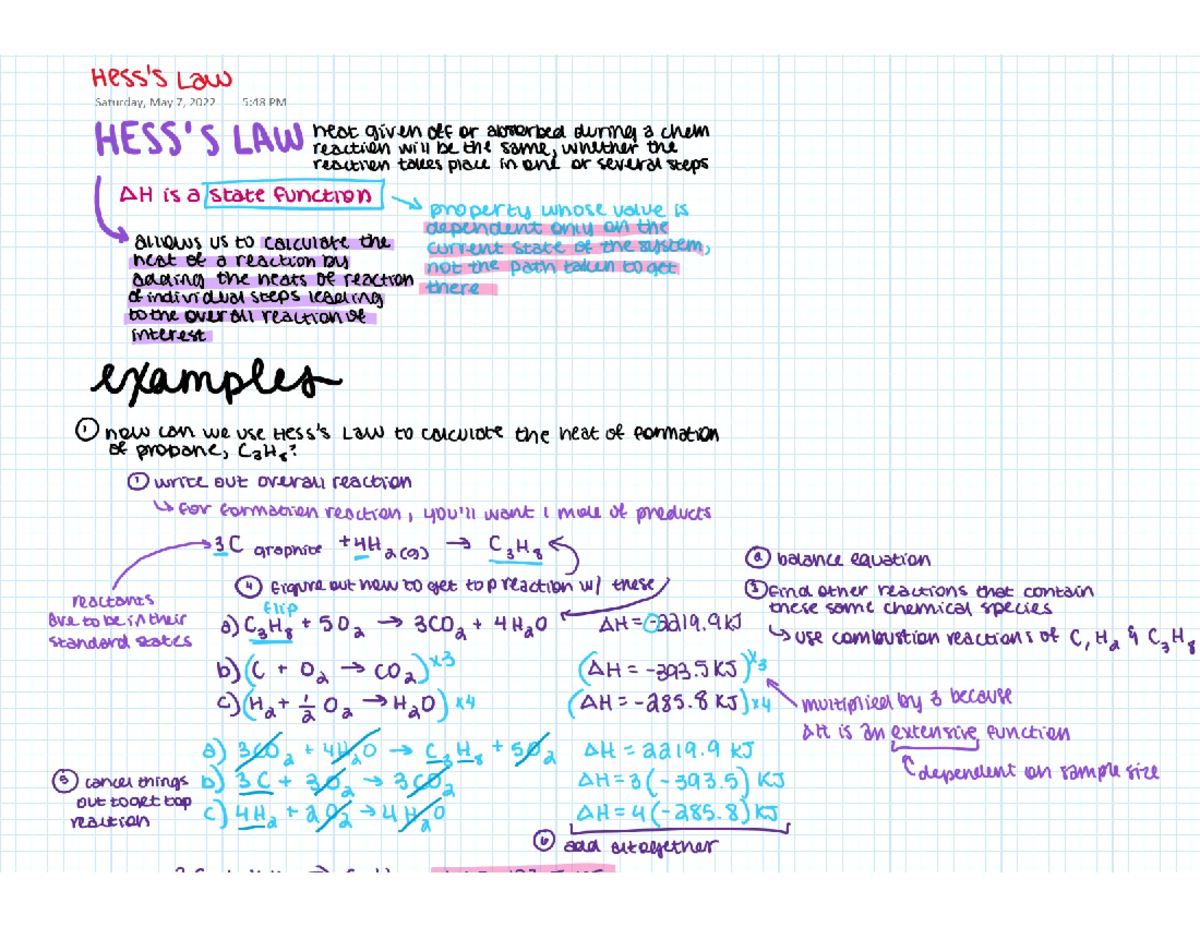 Hess's Law
Saturday, May 7, 2022 5:48 PM
HESS'S LAW
heat given off or absorbed during a chem
reaction will be the same, whether the
reaction takes place in one or several steps
ΔH is a state function
property whose value is
dependent only on the
current state of the system,
not the path taken to get
there
allows us to calculate the
heat of a reaction by
adding the heats of reaction
of individual steps leading
to the overall reaction of
interest
examples
① how can we use Hess's Law to calculate the heat of formation
of propane, C₃H₈?
① write out overall reaction
↳ for formation reaction, you'll want 1 mole of products
3C graphite + 4H₂(g) → C₃H₈
reactants
are to be in their
standard states
② balance equation
③ find other reactions that contain
these same chemical species
↳ use combustion reactions of C, H₂ & C₃H₈
④ figure out how to get top reaction w/ these
flip
a) C₃H₈ + 5O₂ → 3CO₂ + 4H₂O ΔH = -2219.9 KJ
b) (C + O₂ → CO₂) x3 (ΔH = -393.5 KJ) x3
c) (H₂ + 1/2 O₂ → H₂O) x4 (ΔH = -285.8 KJ) x4
multiplied by 3 because
ΔH is an extensive function
dependent on sample size
a) 3CO₂ + 4H₂O → C₃H₈ + 5O₂ ΔH = 2219.9 KJ
b) 3C + 3O₂ → 3CO₂ ΔH = 3(-393.5) KJ
c) 4H₂ + 2O₂ → 4H₂O ΔH = 4(-285.8) KJ
⑤ cancel things
out to get top
reaction
⑥ add altogether